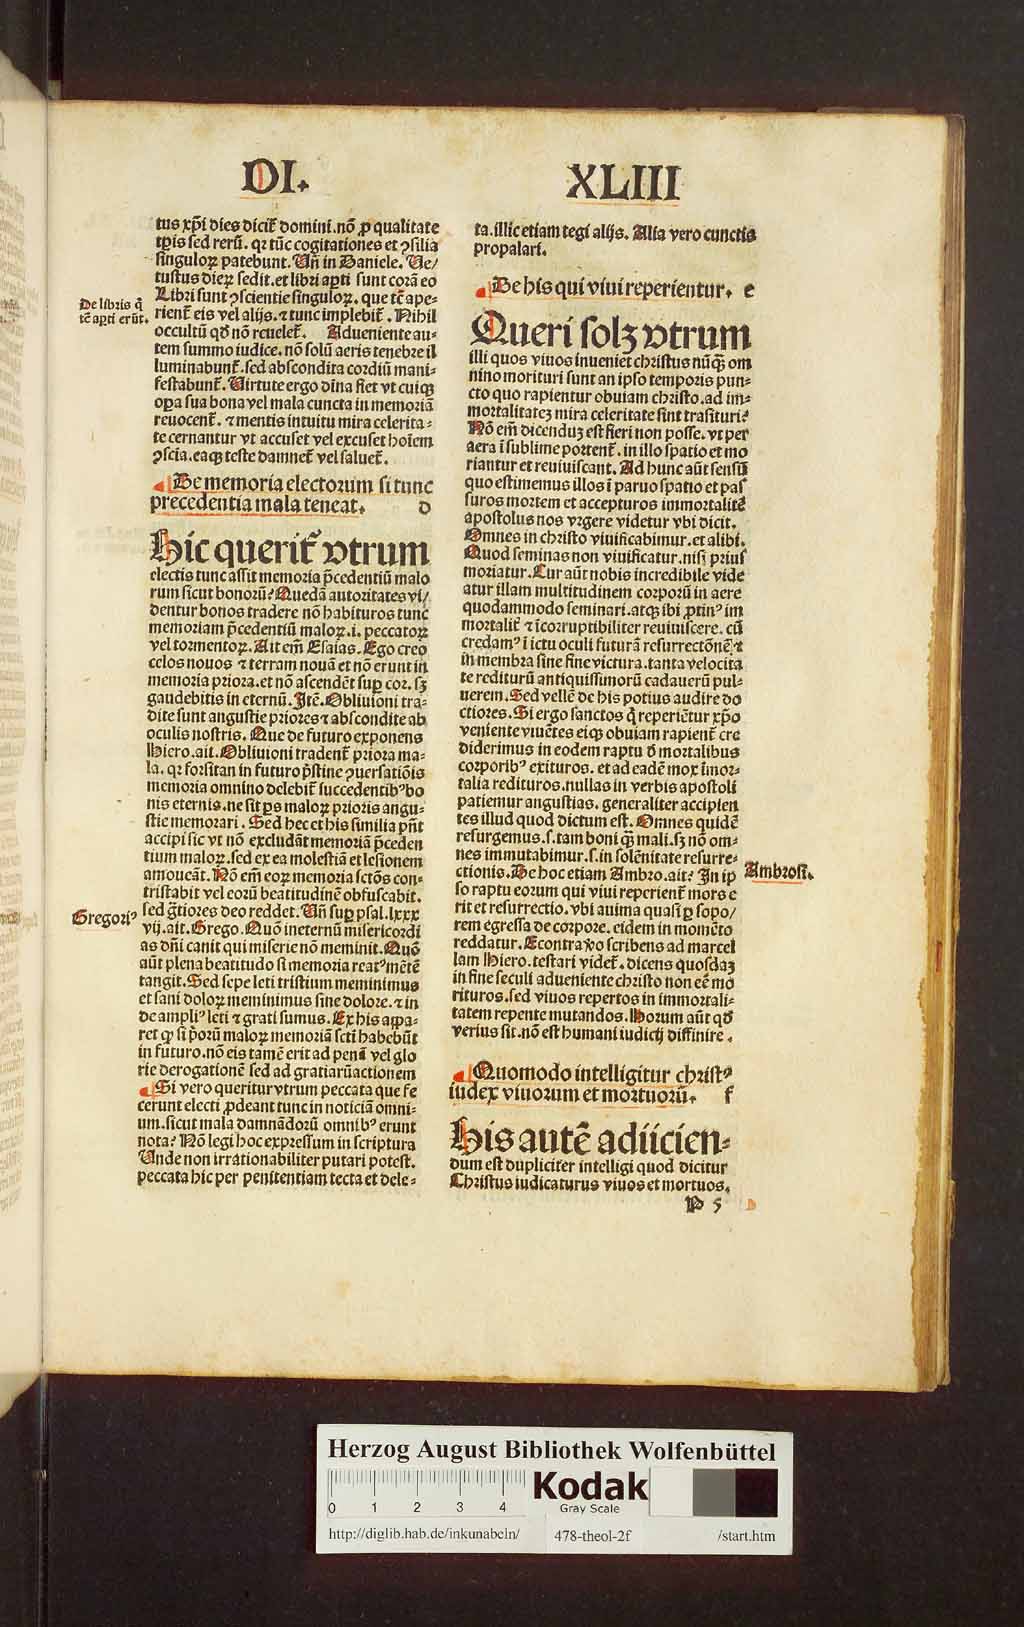 DI.
XLIII
tus xp̄i dies dicit᷑ domini. nō ꝓ qualitate
tp̄is sed rerū. qꝛ tūc cogitationes et ꝯsilia
singuloꝝ patebunt. Uñ in Daniele. Ue/
tustus dieꝝ sedit. et libri aꝑti sunt corā eo
Libri sunt ꝯscientie singuloꝝ. que tc̄ ape-
rient᷑ eis vel alijs. ⁊ tunc implebit᷑. Nihil
occultū qd̄ nō reuelet᷑. Adueniente au-
tem summo iudice. nō solū aeris tenebre il
luminabunt᷑. sed abscondita cordiū mani-
festabunt᷑. Uirtute ergo dīna fiet vt cuiqꝫ
oꝑa sua bona vel mala cuncta in memoriā
reuocent᷑. ⁊ mentis intuitu mira celerita-
te cernantur vt accuset vel excuset hoīem
ꝯscia. eaqꝫ teste damnet᷑ vel saluet᷑.
De libris q̄
tc̄ aꝑti erūt.
¶ De memoria electorum si tunc
precedentia mala teneat. d
Hic querit᷑ vtrum
electis tunc assit memoria p̄cedentiū malo
rum sicut bonorū? Quedā autoritates vi/
dentur bonos tradere nō habituros tunc
memoriam p̄cedentiū maloꝝ. i. peccatoꝝ
vel tormentoꝝ. Ait em̄ Esaias. Ego creo
celos nouos ⁊ terram nouā et nō erunt in
memoria priora. et nō ascendēt suꝑ cor. sꝫ
gaudebitis in eternū. Itē. Obliuioni tra-
dite sunt angustie priores ⁊ abscondite ab
oculis nostris. Que de futuro exponens
Hiero. ait. Obliuioni tradent᷑ priora ma-
la. qꝛ forsitan in futuro p̄stine ꝯuersatiōis
memoria omnino delebit᷑ succedentibꝰ bo
nis eternis. ne sit ꝑs maloꝝ prioris angu-
stie memorari. Sed hec et his similia pn̄t
accipi sic vt nō excludāt memoriā p̄ceden
tium maloꝝ. sed ex ea molestiā et lesionem
amoueāt. Nō em̄ eoꝝ memoria sctōs con-
tristabit vel eorū beatitudinē obfuscabit.
sed gr̄tiores deo reddet. Uñ suꝑ psal. lxxx
vij. ait. Grego. Quō ineternū misericordi
as dn̄i canit qui miserie nō meminit. Quō
aūt plena beatitudo si memoria reatꝰ mētē
tangit. Sed sepe leti tristium meminimus
et sani doloꝝ meminimus sine dolore. ⁊ in
de ampliꝰ leti ⁊ grati sumus. Ex his appa-
ret ꝙ si p̄orū maloꝝ memoriā scti habebūt
in futuro. nō eis tamē erit ad penā vel glo
rie derogationē sed ad gratiarū actionem
¶ Si vero queritur vtrum peccata que fe
cerunt electi ꝓdeant tunc in noticiā omni-
um. sicut mala damnādorū omnibꝰ erunt
nota? Nō legi hoc expressum in scriptura
Unde non irrationabiliter putari potest.
peccata hic per penitentiam tecta et dele-
Gregoriꝰ
ta. illic etiam tegi alijs. Alia vero cunctis
propalari.
¶ De his qui viui reperientur. e
Queri solꝫ vtrum
illi quos viuos inueniet christus nūqꝫ om
nino morituri sunt an ipso temporis pun-
cto quo rapientur obuiam christo. ad im-
mortalitatē mira celeritate sint trāsituri?
Nō em̄ dicenduꝫ est fieri non posse. vt per
aera ī sublime portent᷑. in illo spatio et mo
riantur et reuiuiscant. Ad hunc aūt sensū
quo estimemus illos ī paruo spatio et pas
suros mortem et accepturos immortalitē
apostolus nos vrgere videtur vbi dicit.
Omnes in christo viuificabimur. et alibi.
Quod seminas non viuificatur. nisi prius
moriatur. Cur aūt nobis incredibile vide
atur illam multitudinem corporū in aere
quodammodo seminari. atqꝫ ibi ꝓtinꝰ im
mortalit᷑ ⁊ īcorruptibiliter reuiuiscere. cū
credamꝰ ī ictu oculi futurā resurrectōnē. ⁊
in membra sine fine victura. tanta velocita
te rediturū antiquissimorū cadauerū pul-
uerem. Sed vellē de his potius audire do
ctiores. Si ergo sanctos q̄ reperiētur xp̄o
veniente viuētes eiqꝫ obuiam rapient᷑ cre
diderimus in eodem raptu d̄ mortalibus
corporibꝰ exituros. et ad eadē mox īmor-
talia redituros. nullas in verbis apostoli
patiemur angustias. generaliter accipien
tes illud quod dictum est. Omnes quidē
resurgemus. s. tam boni q̄ mali. sꝫ nō om-
nes immutabimur. s. in solēnitate resurre-
ctionis. De hoc etiam Ambro. ait? In ip
so raptu eorum qui viui reperient᷑ mors e
rit et resurrectio. vbi anima quasi ꝑ sopo/
rem egressa de corpore. eidem in momēto
reddatur. Econtra v̄o scribens ad marcel
lam Hiero. testari videt᷑. dicens quosdaꝫ
in fine seculi adueniente christo non eē mo
rituros. sed viuos repertos in immortali-
tatem repente mutandos. Horum aūt qd̄
verius sit. nō est humani iudicij diffinire.
Ambrosi.
¶ Quomodo intelligitur christꝰ
iudex viuorum et mortuorū. f
His autē adiicien-
dum est dupliciter intelligi quod dicitur
Christus iudicaturus viuos et mortuos.
P 5
Herzog August Bibliothek Wolfenbüttel
0 1 2 3 4
Kodak
Gray Scale
http://diglib.hab.de/inkunabeln/ 478-theol-2f /start.htm